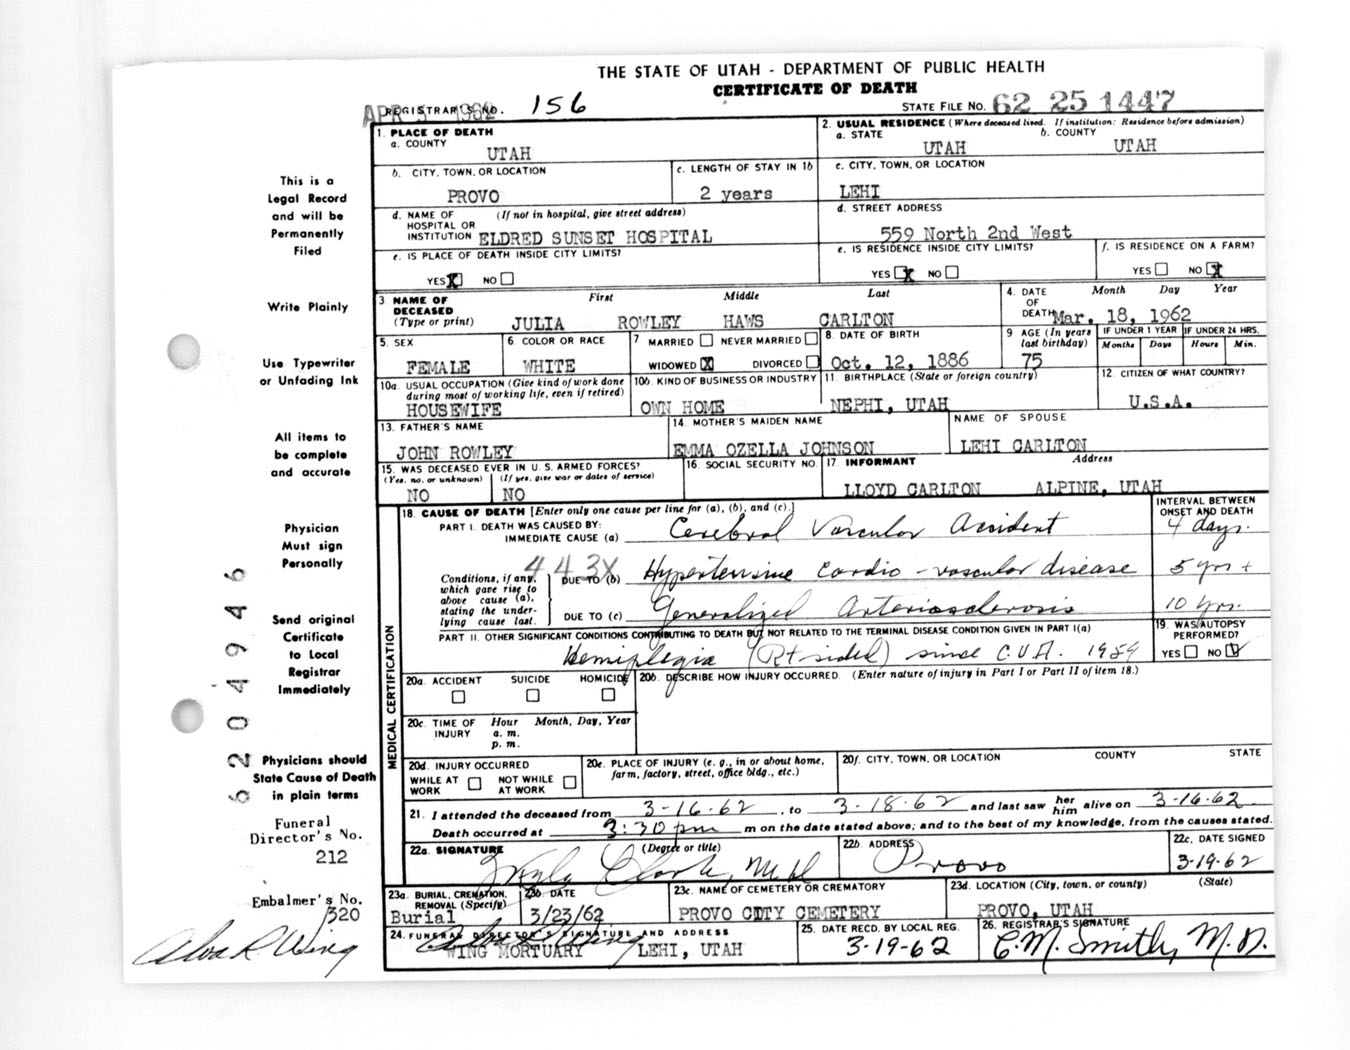 THE STATE OF UTAH - DEPARTMENT OF PUBLIC HEALTH
CERTIFICATE OF DEATH
REGISTRAR'S NO. 156
APR 1962
STATE FILE NO. 62 25 1447
1. PLACE OF DEATH
a. COUNTY
UTAH
2. USUAL RESIDENCE (Where deceased lived. If institution: Residence before admission)
a. STATE b. COUNTY
UTAH UTAH
b. CITY, TOWN, OR LOCATION
PROVO
c. LENGTH OF STAY IN 1b
2 years
c. CITY, TOWN, OR LOCATION
LEHI
d. NAME OF HOSPITAL OR INSTITUTION (If not in hospital, give street address)
ELDRED SUNSET HOSPITAL
d. STREET ADDRESS
559 North 2nd West
e. IS PLACE OF DEATH INSIDE CITY LIMITS?
YES X NO
e. IS RESIDENCE INSIDE CITY LIMITS?
YES X NO
f. IS RESIDENCE ON A FARM?
YES NO X
3. NAME OF DECEASED (Type or print)
First Middle Last
JULIA ROWLEY HAWS CARLTON
4. DATE OF DEATH Month Day Year
Mar. 18, 1962
5. SEX
FEMALE
6. COLOR OR RACE
WHITE
7 MARRIED NEVER MARRIED
WIDOWED X DIVORCED
8. DATE OF BIRTH
Oct. 12, 1886
9 AGE (In years last birthday)
75
IF UNDER 1 YEAR
Months Days
IF UNDER 24 HRS.
Hours Min.
10a. USUAL OCCUPATION (Give kind of work done during most of working life, even if retired)
HOUSEWIFE
10b. KIND OF BUSINESS OR INDUSTRY
OWN HOME
11. BIRTHPLACE (State or foreign country)
NEPHI, UTAH
12. CITIZEN OF WHAT COUNTRY?
U.S.A.
13. FATHER'S NAME
JOHN ROWLEY
14. MOTHER'S MAIDEN NAME
EMMA OZELLA JOHNSON
NAME OF SPOUSE
LEHI CARLTON
15. WAS DECEASED EVER IN U. S. ARMED FORCES?
(Yes, no, or unknown) (If yes, give war or dates of service)
NO NO
16. SOCIAL SECURITY NO.
17. INFORMANT Address
LLOYD CARLTON ALPINE, UTAH
MEDICAL CERTIFICATION
18. CAUSE OF DEATH [Enter only one cause per line for (a), (b), and (c).]
INTERVAL BETWEEN ONSET AND DEATH
PART I. DEATH WAS CAUSED BY:
IMMEDIATE CAUSE (a) Cerebral Vascular Accident 4 days.
443X
Conditions, if any, which gave rise to above cause (a), stating the underlying cause last.
DUE TO (b) Hypertensive Cardio-vascular disease 5 yrs +
DUE TO (c) Generalized Arteriosclerosis 10 yrs.
PART II. OTHER SIGNIFICANT CONDITIONS CONTRIBUTING TO DEATH BUT NOT RELATED TO THE TERMINAL DISEASE CONDITION GIVEN IN PART I(a)
Hemiplegia (Rt sided) since C.V.A. 1959
19. WAS AUTOPSY PERFORMED?
YES NO
20a. ACCIDENT SUICIDE HOMICIDE
20b. DESCRIBE HOW INJURY OCCURRED. (Enter nature of injury in Part I or Part II of item 18.)
20c. TIME OF INJURY Hour Month, Day, Year
a. m.
p. m.
20d. INJURY OCCURRED
WHILE AT WORK NOT WHILE AT WORK
20e. PLACE OF INJURY (e. g., in or about home, farm, factory, street, office bldg., etc.)
20f. CITY, TOWN, OR LOCATION COUNTY STATE
21. I attended the deceased from 3-16-62, to 3-18-62 and last saw her him alive on 3-16-62
Death occurred at 3:30 pm m on the date stated above; and to the best of my knowledge, from the causes stated.
22a. SIGNATURE (Degree or title)
Clark, M.D.
22b. ADDRESS
Provo
22c. DATE SIGNED
3-19-62
23a. BURIAL, CREMATION, REMOVAL (Specify)
Burial
23b. DATE
3/23/62
23c. NAME OF CEMETERY OR CREMATORY
PROVO CITY CEMETERY
23d. LOCATION (City, town, or county) (State)
PROVO, UTAH
24. FUNERAL DIRECTOR'S SIGNATURE AND ADDRESS
WING MORTUARY LEHI, UTAH
25. DATE RECD. BY LOCAL REG.
3-19-62
26. REGISTRAR'S SIGNATURE
C. M. Smith, M.D.
This is a
Legal Record
and will be
Permanently
Filed
Write Plainly
Use Typewriter
or Unfading Ink
All items to
be complete
and accurate
Physician
Must sign
Personally
Send original
Certificate
to Local
Registrar
Immediately
Physicians should
State Cause of Death
in plain terms
Funeral
Director's No.
212
Embalmer's No.
320
Alva R. Wing
6204946